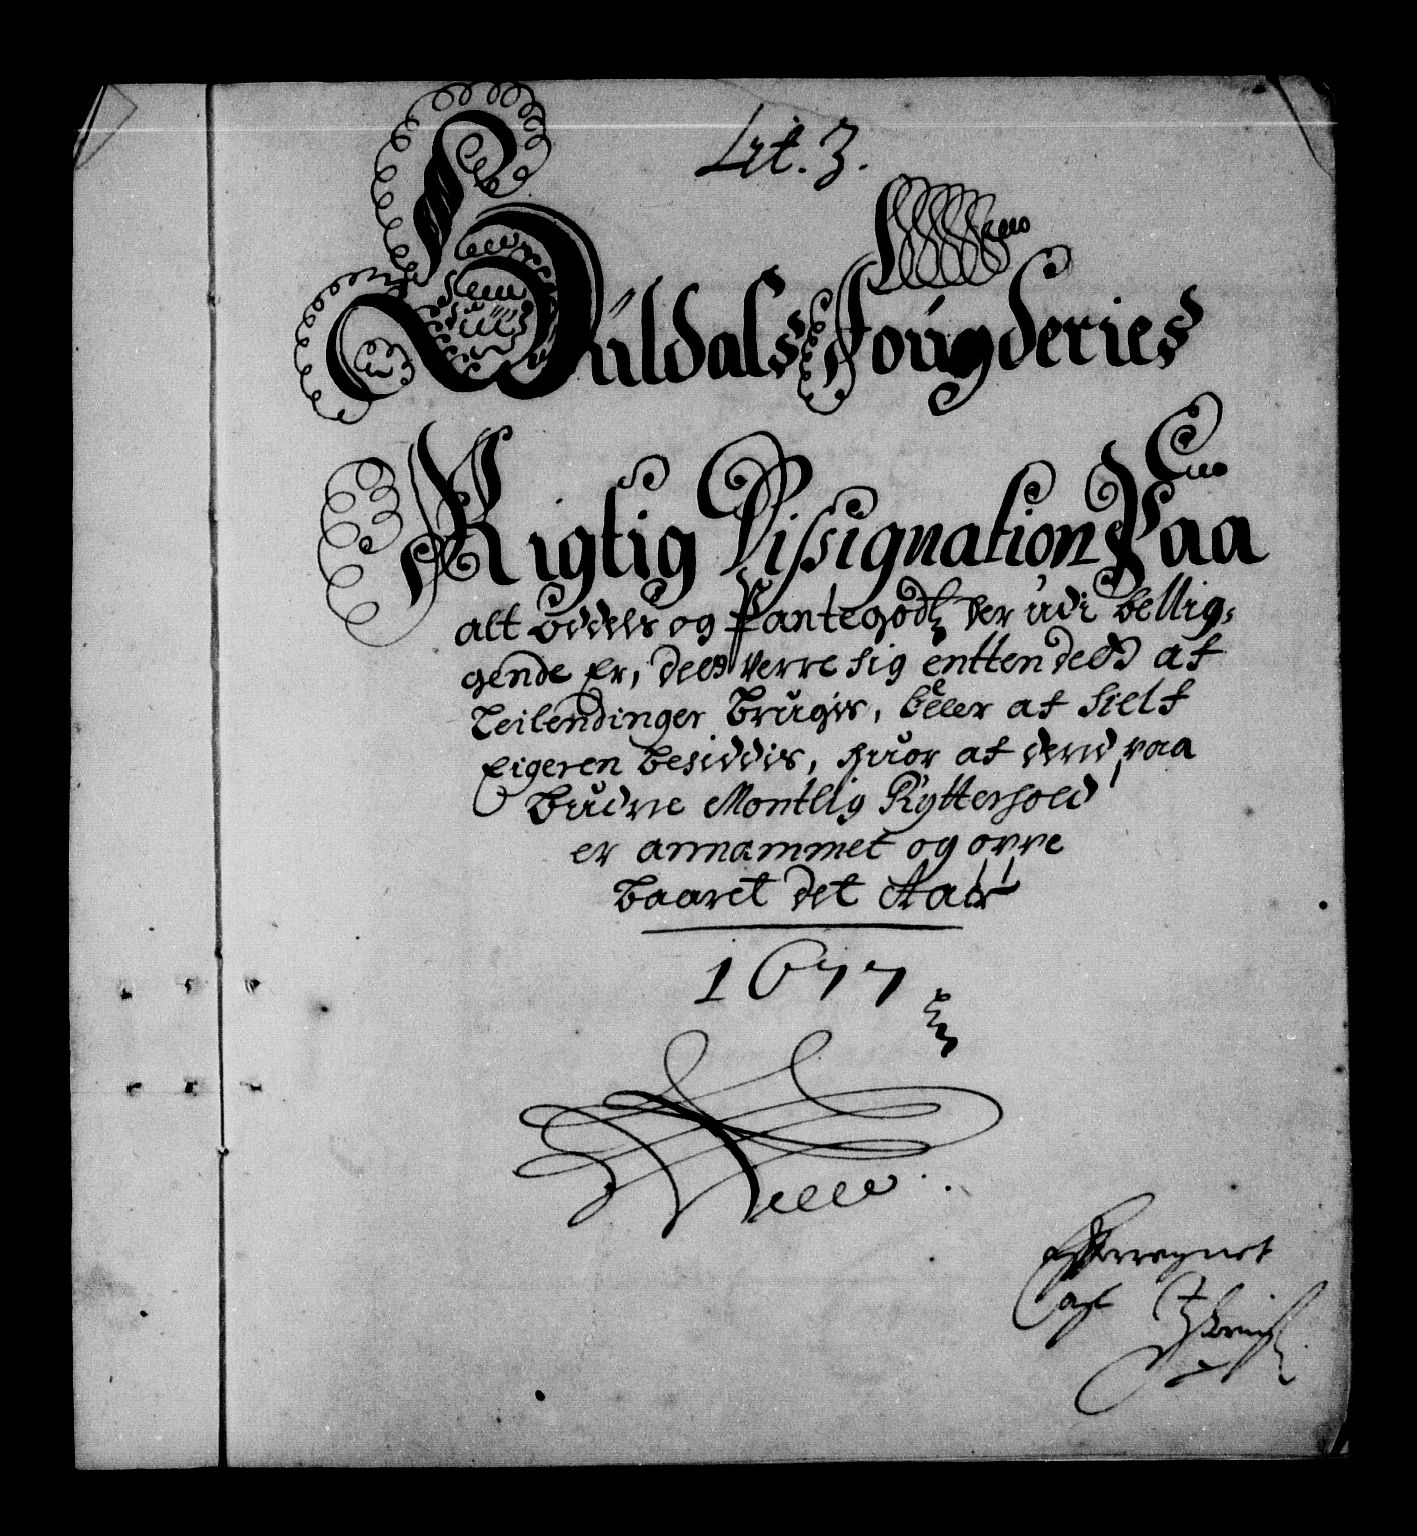 Lit. 3.
Guldals Fougderies
Rigtig Dissignation Paa
alt Oddels og Pantegods der udi bellig-
gende Er, deed Verre sig entten deed af
Leilendinger Brugis, heller af sielf
Eigeren Besiddis, huor af dend paa
Budne Montlig Rÿttersold
er annammet og opre
baaret det Aar
1677
Efterregnet
af